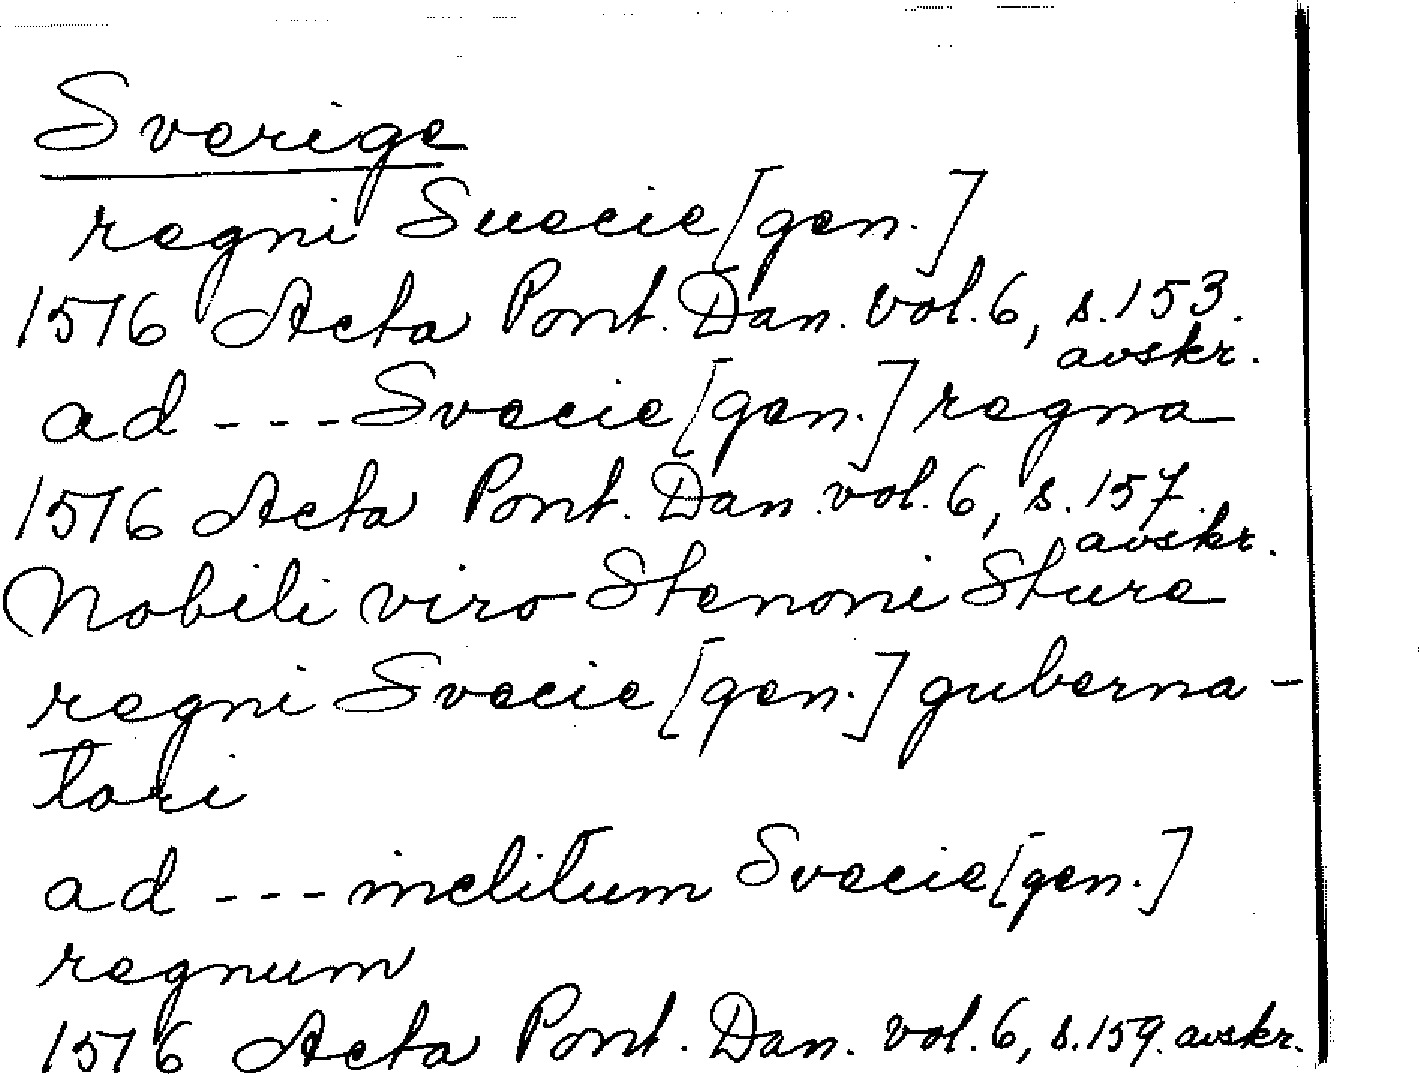 Sverige
regni Suecie [gen.]
1516 Acta Pont. Dan. vol. 6, s. 153.
avskr.
ad --- Svecie [gen.] regna
1516 Acta Pont. Dan. vol. 6, s. 157.
avskr.
Nobili viro Stenoni Sture
regni Svecie [gen.] guberna-
tori
ad --- inclitum Svecie [gen.]
regnum
1516 Acta Pont. Dan. vol. 6, s. 159. avskr.